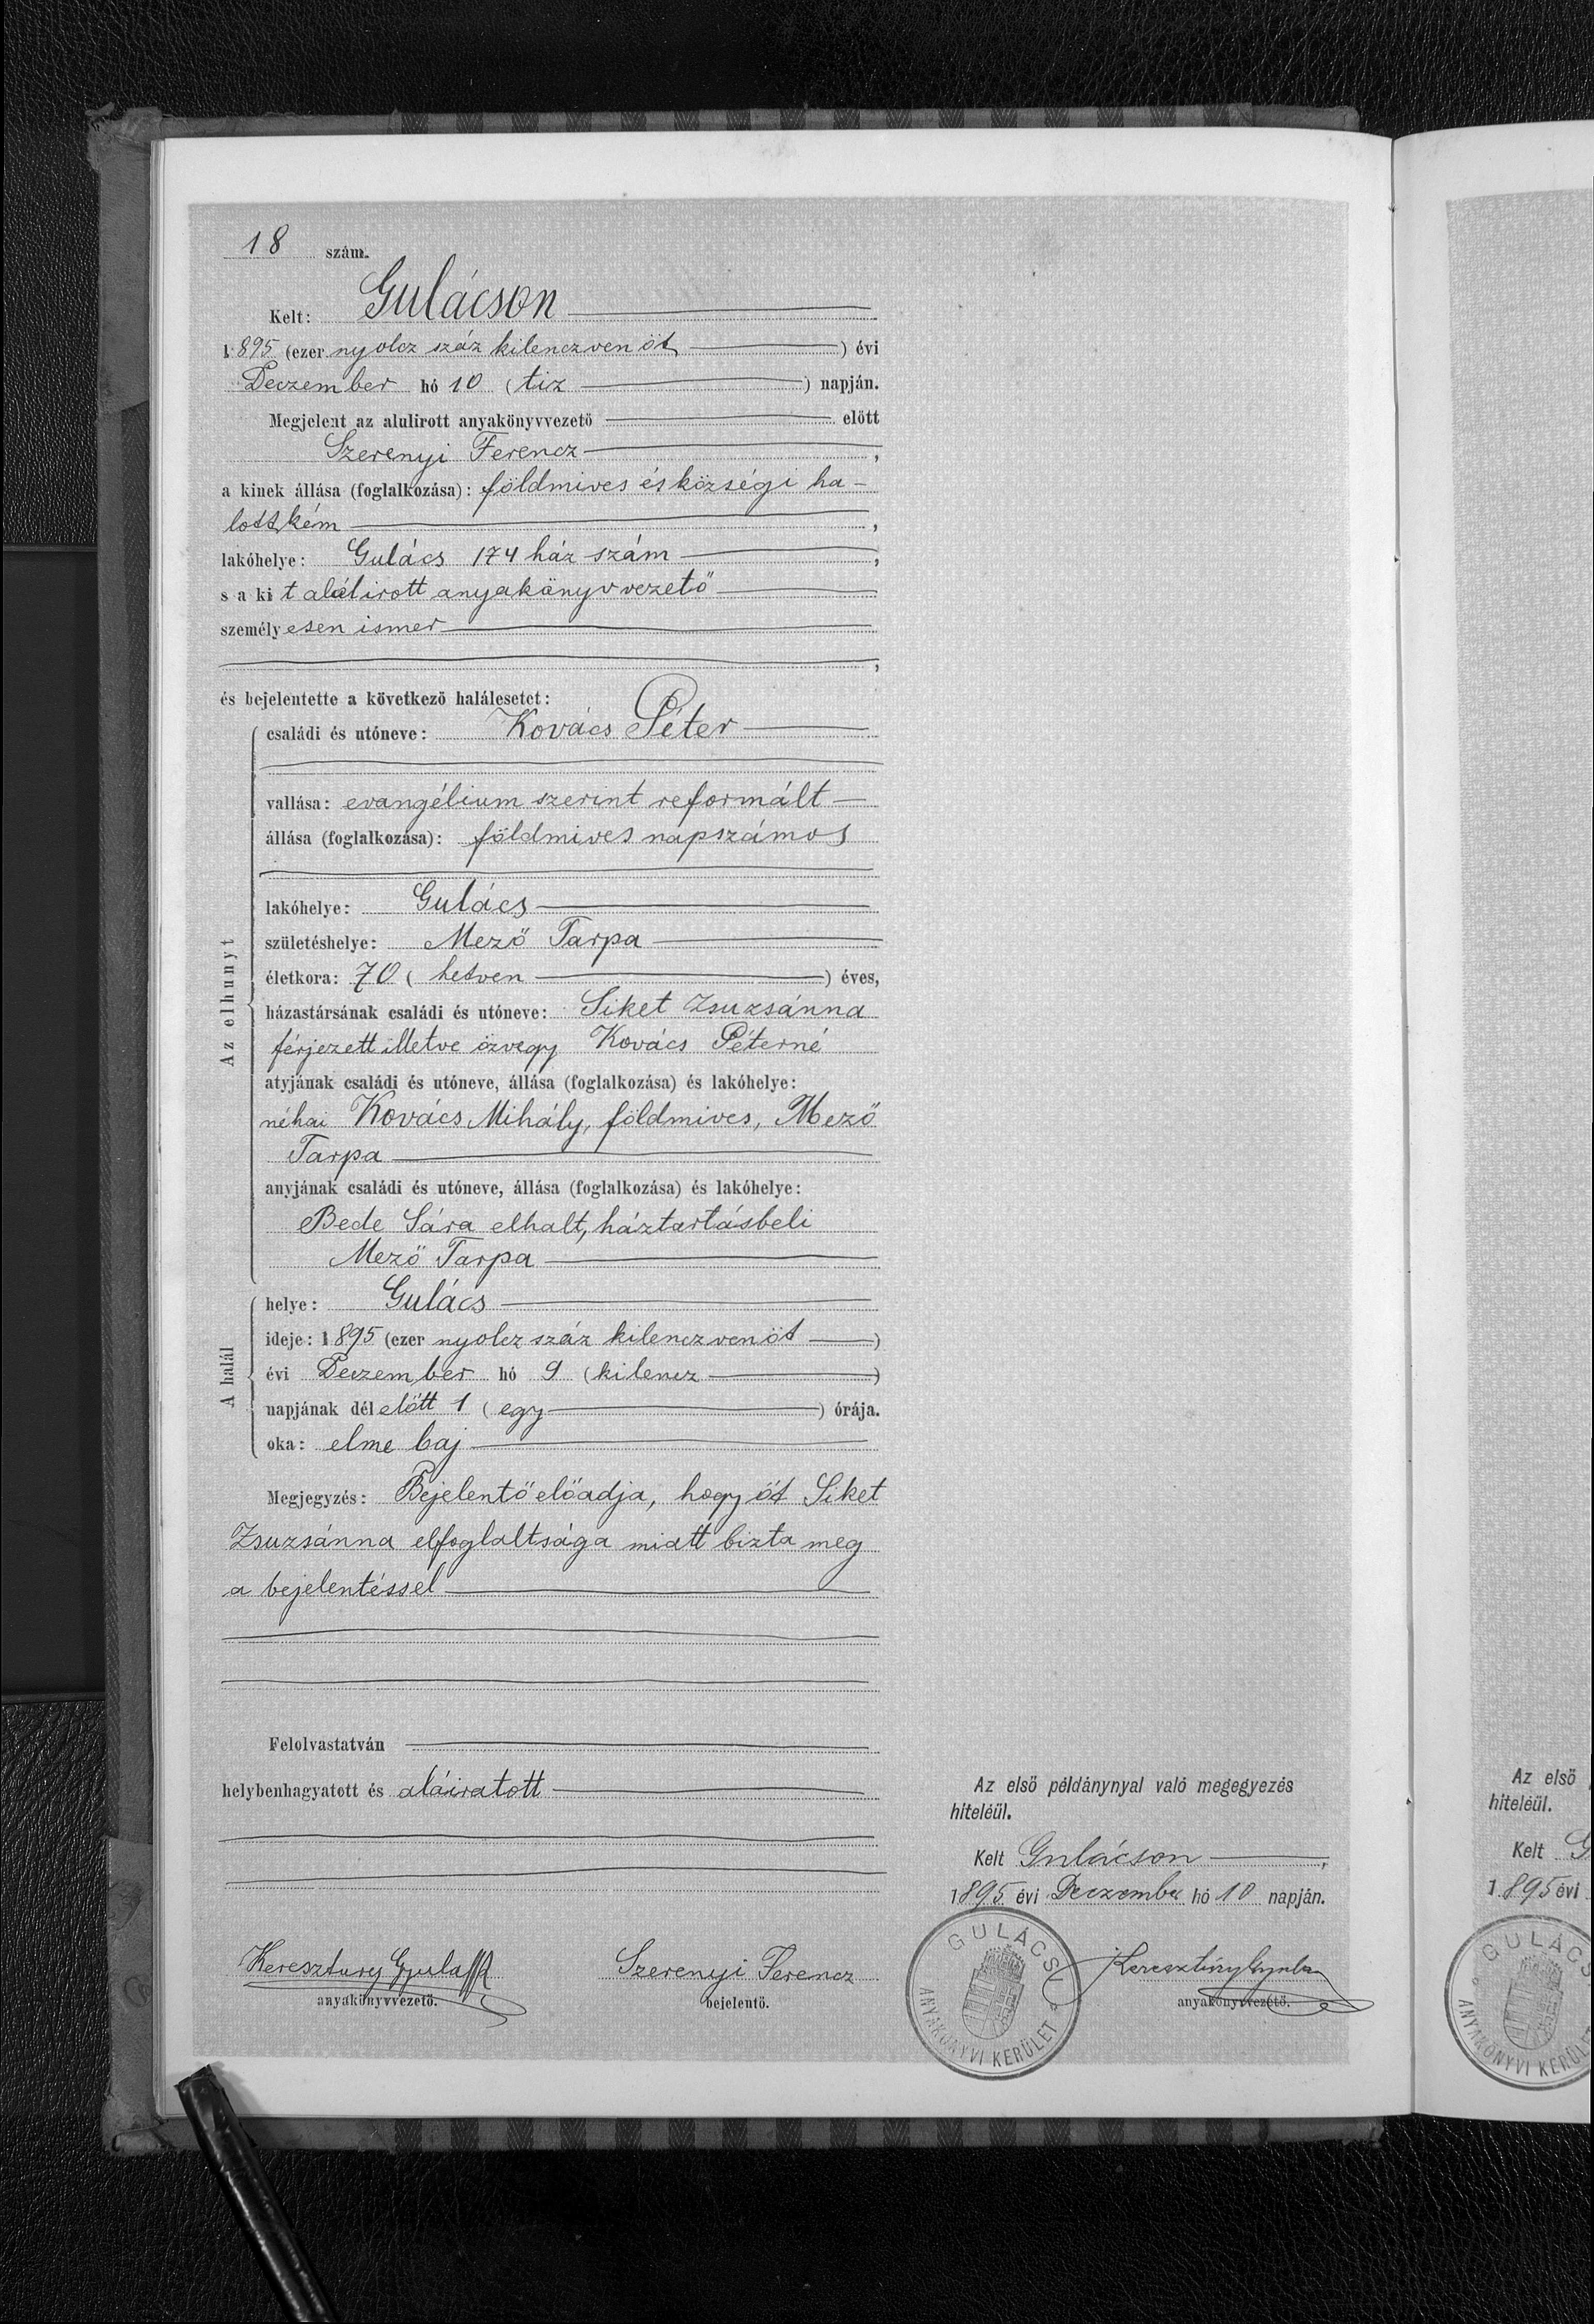 18 szám.
Kelt: Gulácson
1895 (ezer nyolcz száz kilenczvenöt) évi
Deczember hó 10 (tiz) napján.
Megjelent az alulirott anyakönyvvezető előtt
Szerenyi Ferencz,
a kinek állása (foglalkozása): földmives és községi ha-
lottkém,
lakóhelye: Gulács 174 ház szám,
s a kit alólirott anyakönyvvezető
személyesen ismer
,
és bejelentette a következő halálesetet:
Az elhunyt
családi és utóneve: Kovács Péter
vallása: evangélium szerint reformált
állása (foglalkozása): földmives napszámos
lakóhelye: Gulács
születéshelye: Mező Tarpa
életkora: 70 (hetven) éves,
házastársának családi és utóneve: Siket Zsuzsánna
férjezett illetve özvegy Kovács Péterné
atyjának családi és utóneve, állása (foglalkozása) és lakóhelye:
néhai Kovács Mihály, földmives, Mező
Tarpa
anyjának családi és utóneve, állása (foglalkozása) és lakóhelye:
Bede Sára elhalt, háztartásbeli
Mező Tarpa
A halál
helye: Gulács
ideje: 1895 (ezer nyolcz száz kilenczvenöt)
évi Deczember hó 9 (kilencz)
napjának délelőtt 1 (egy) órája.
oka: elme baj
Megjegyzés: Bejelentő előadja, hogy őt Siket
Zsuzsánna elfoglaltsága miatt bizta meg
a bejelentéssel
Felolvastatván
helybenhagyatott és aláiratott
Keresztury Gyula
anyakönyvvezető.
Szerenyi Ferencz
bejelentő.
Az első példánynyal való megegyezés
hiteléül.
Kelt Gulácson,
1895 évi Deczember hó 10 napján.
GULÁCSI
ANYAKÖNYVI KERÜLET
Keresztury Gyula
anyakönyvvezető.
Az első
hiteléül.
Kelt G
1895 évi
GULÁCS
ANYAKÖNYVI KERÜLET